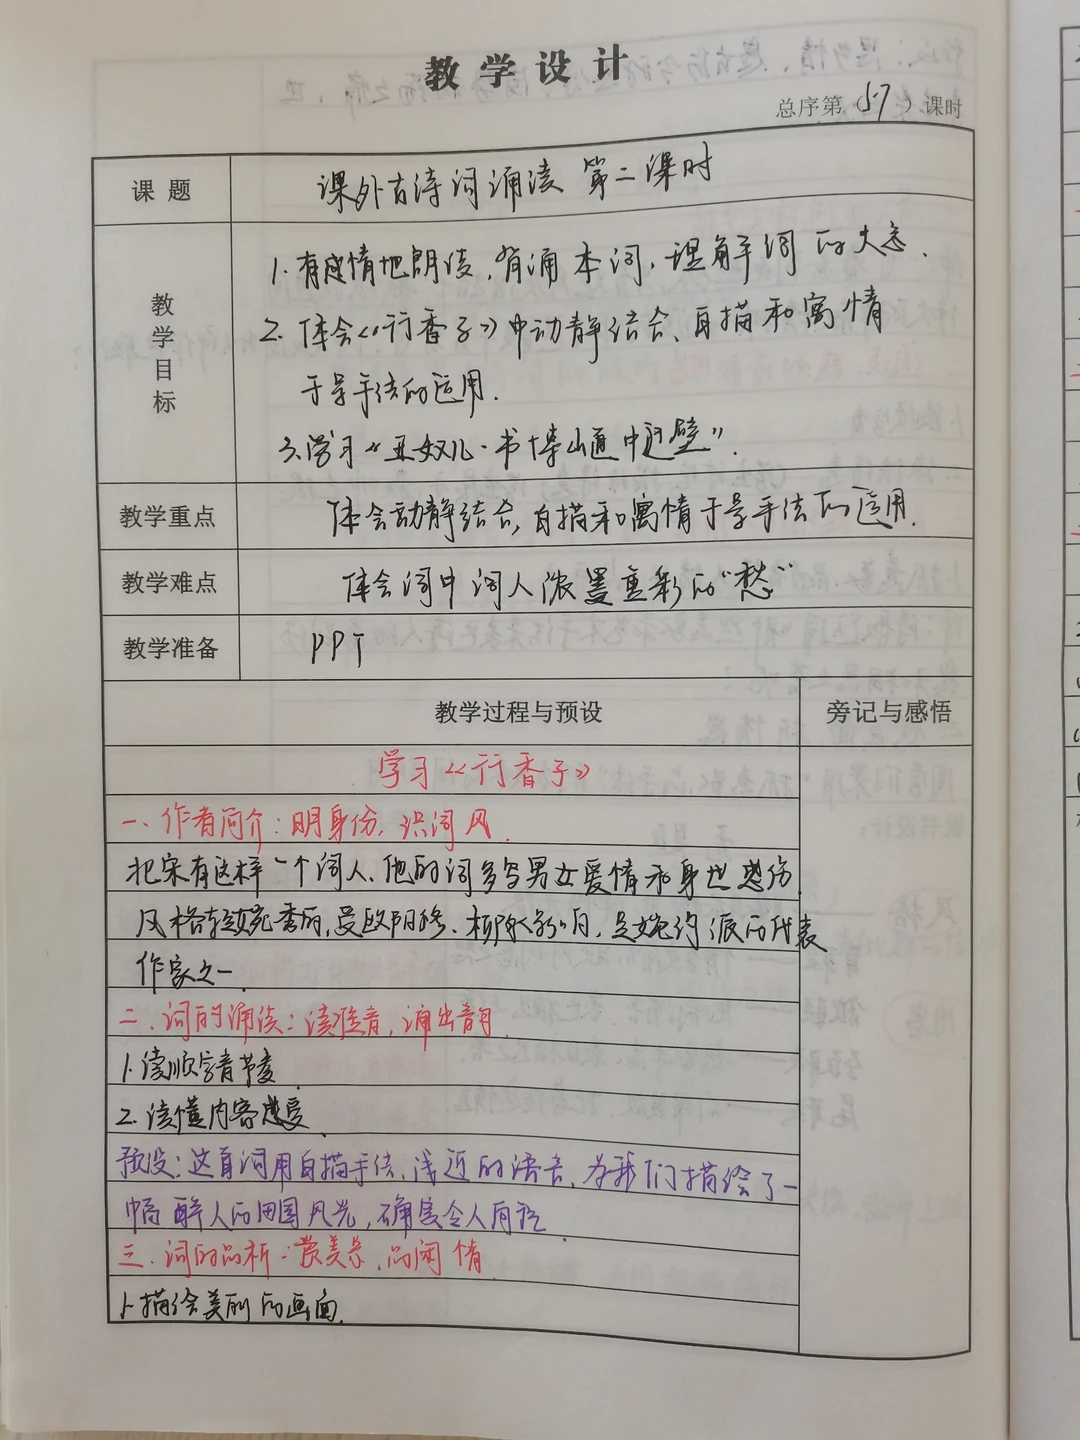 教学设计
总序第（57）课时
课题
课外古诗词诵读 第二课时
教学目标
1.有感情地朗读,背诵本词,理解词的大意.
2.体会《行香子》中动静结合、白描和寓情
于景手法的运用.
3.学习《丑奴儿·书博山道中壁》.
教学重点
体会动静结合,白描和寓情于景手法的运用.
教学难点
体会词中词人浓墨重彩的“愁”
教学准备
PPT
教学过程与预设
旁记与感悟
学习《行香子》
一、作者简介:明身份,识词风.
北宋有这样一个词人、他的词多写男女爱情和身世感伤
风格轻婉秀丽,受欧阳修、柳永影响,是婉约派的代表
作家之一.
二、词的诵读:读准音,诵出韵
1.读顺字音节奏.
2.读懂内容感受.
预设:这首词用白描手法、浅近的语言,为我们描绘了一
幅醉人的田园风光,确实令人向往.
三、词的品析:赏美景,品闲情
1.描绘美丽的画面.